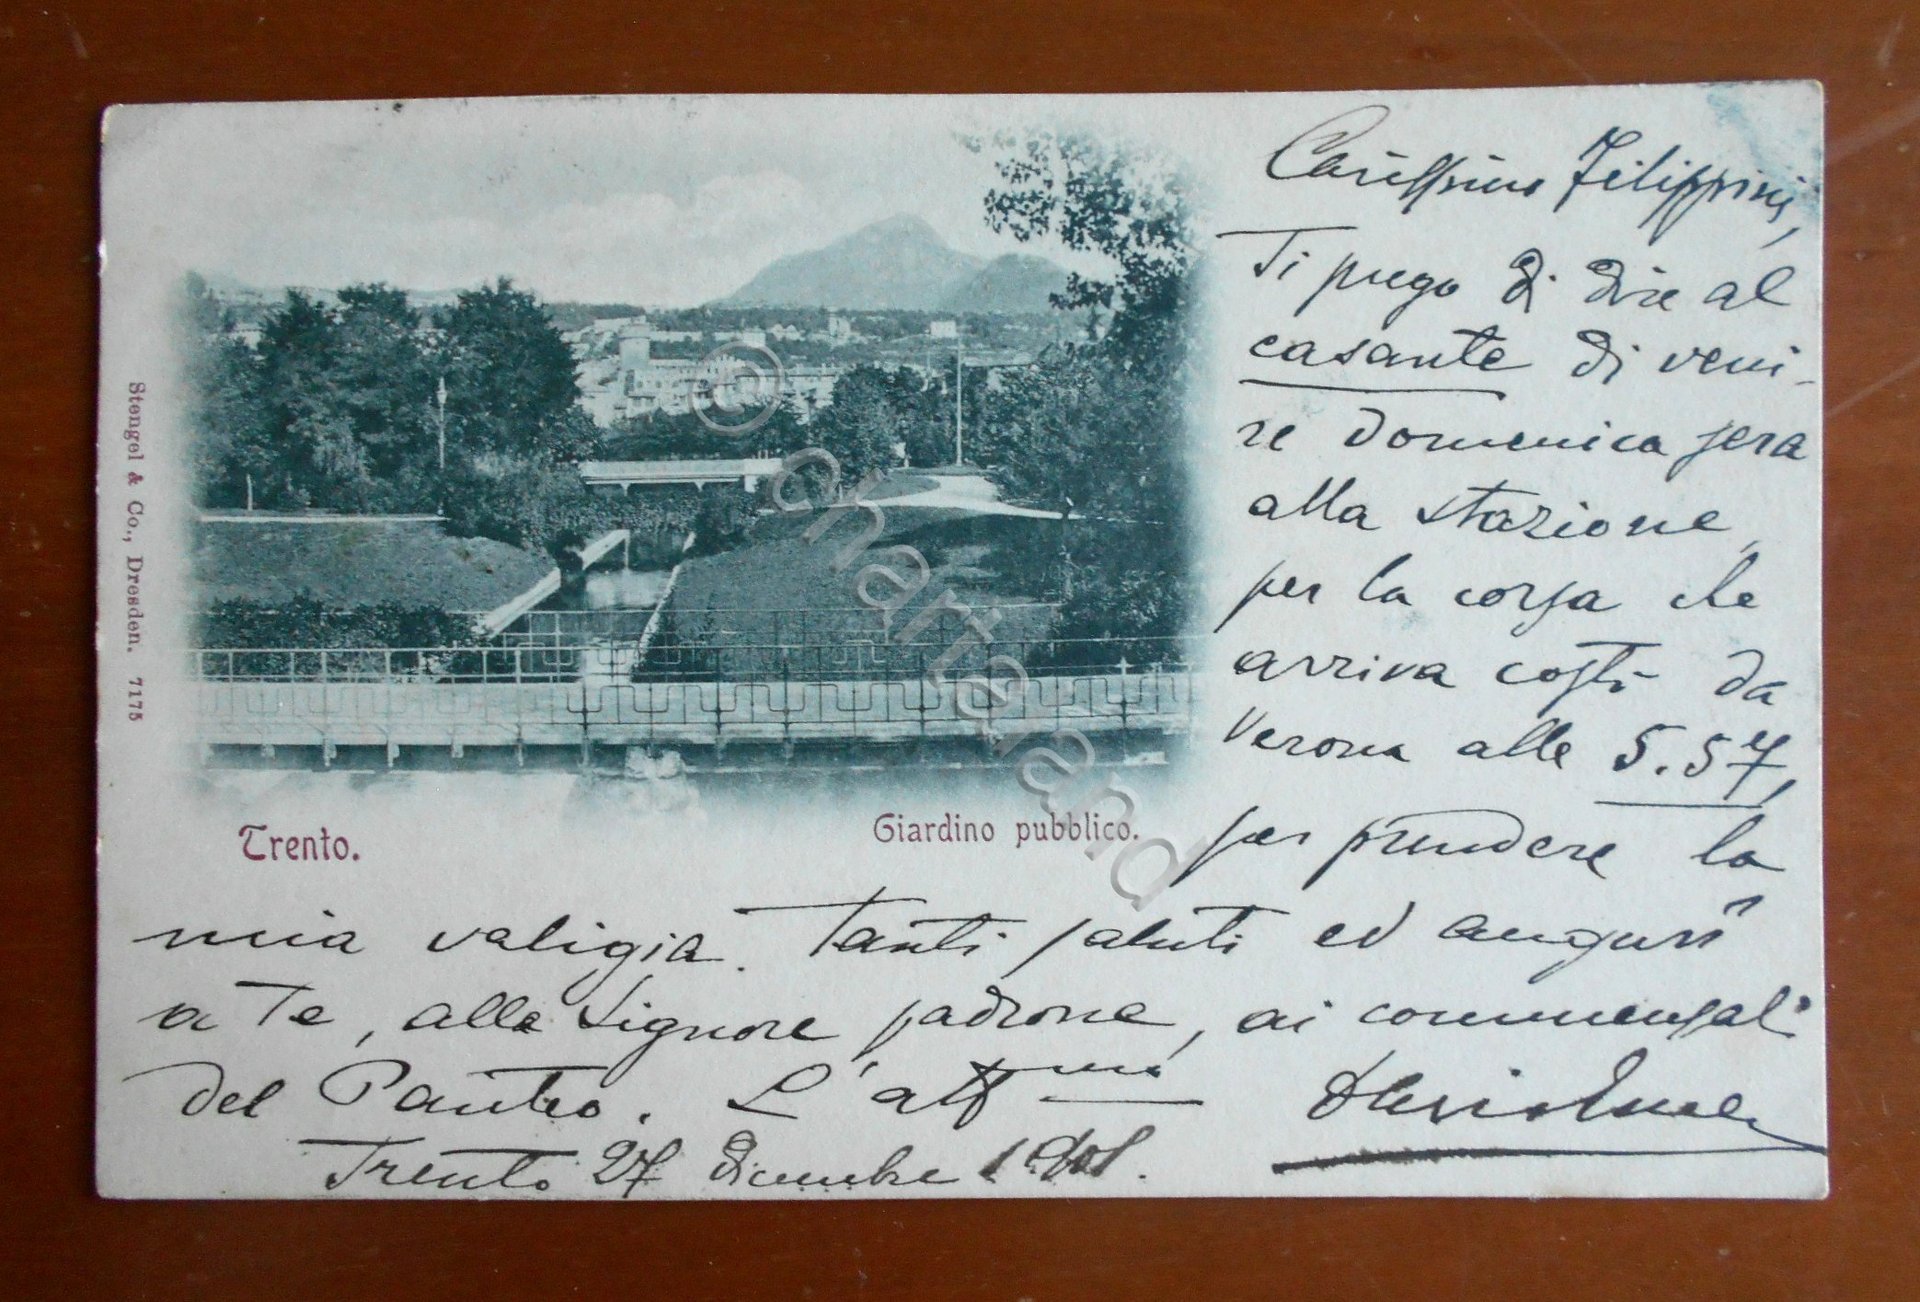 Carissimo Filippini,
Ti prego di dire al
casante di veni-
re domenica sera
alla stazione,
per la corsa che
arriva costì da
Verona alle 5.57,
per prendere la
mia valigia. Tanti saluti ed auguri
a Te, alla Signora padrona, ai commensali
del Panteo. L'aff mo
Trento 27 dicembre 1901.
Trento.
Giardino pubblico.
Stengel & Co., Dresden. 7175
© chartaland